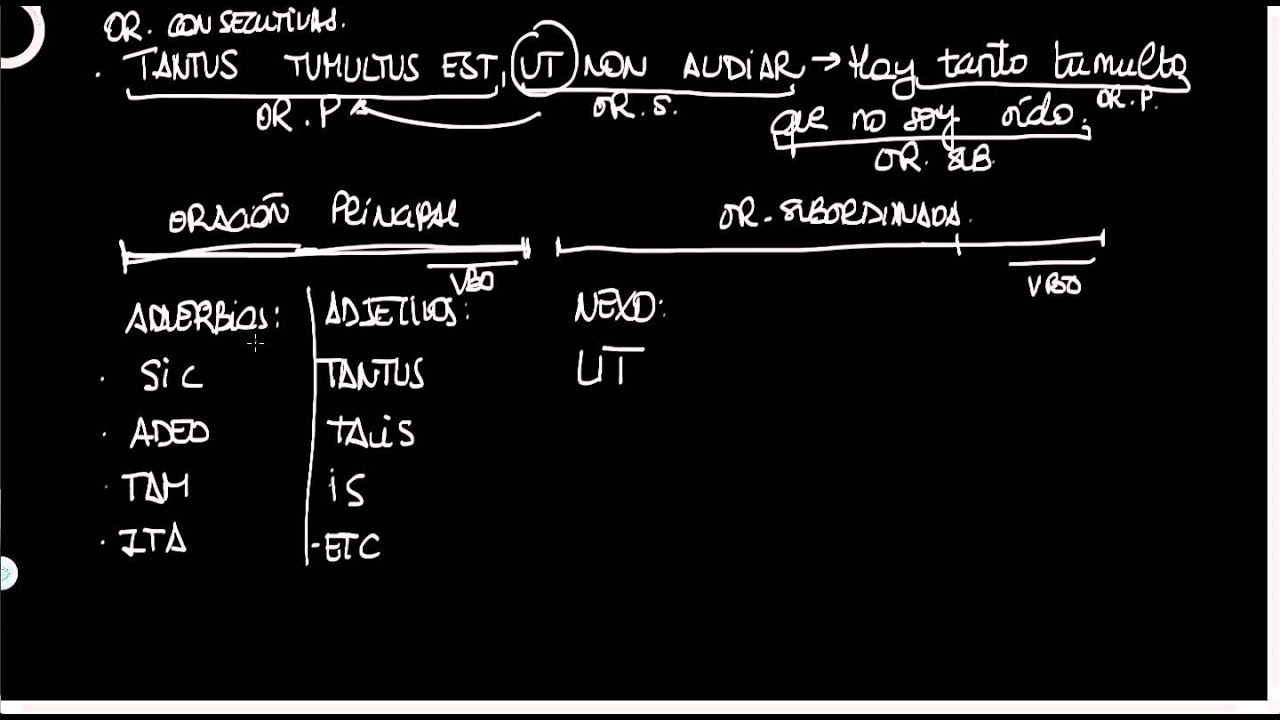 OR. CONSECUTIVAS.
. TANTUS TUMULTUS EST, UT NON AUDIAR → Hay tanto tumulto
OR. P OR. S. OR. P.
que no soy oído.
OR. SUB.
ORACIÓN PRINCIPAL OR. SUBORDINADA.
VBO VBO
ADVERBIOS: ADJETIVOS: NEXO:
. SIC TANTUS UT
. ADEO TALIS
. TAM IS
. ITA - ETC